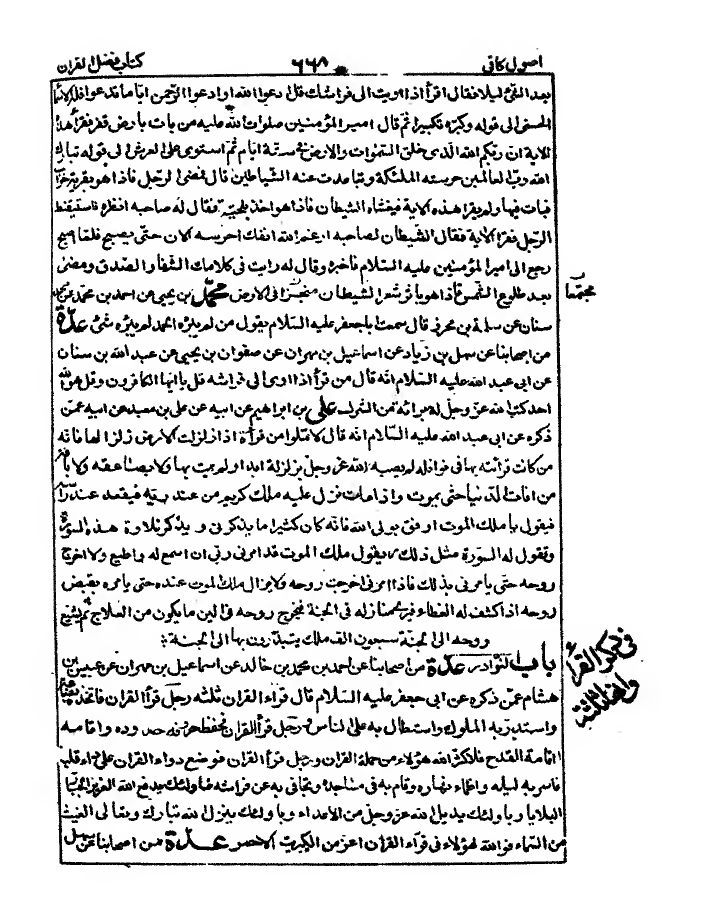 اصول كافى ٦٦٨ كتاب فضل القران
بعد الشئ ليلا فقال اقرأ اذا اويت الى فراشك قل ادعوا الله او ادعوا الرحمن ايا ما تدعوا فله الاسماء
الحسنى الى قوله وكبره تكبيرا ثم قال امير المؤمنين صلوات الله عليه من بات بارض قفر فقرأ هذه
الاية ان ربكم الله الذى خلق السموات والارض فى ستة ايام ثم استوى على العرش الى قوله تبارك
الله رب العالمين حرسته الملئكة وتباعدت عنه الشياطين قال فمضى الرجل فاذا هو بقرية خراب
فبات فيها ولم يقرا هذه الاية فيغشاه الشيطان فاذا هو اخذ بلحيته فقال له صاحبه انظره فاستيقظ
الرجل فقرأ الاية فقال الشيطان لصاحبه ارغم الله انفك احرسه الان حتى يصبح فلما اصبح
رجع الى امير المؤمنين عليه السلام فاخبره وقال له رايت فى كلامك الشفاء والصدق ومضى
بعد طلوع الشمس فاذا هو باثر شعر الشيطان منجرا فى الارض محمد بن يحيى عن احمد بن محمد عن محمد بن
مجتمعا
سنان عن سلمة بن محرز قال سمعت ابا جعفر عليه السلام يقول من لم يبرئه الحمد لم يبرئه شئ عدة
من اصحابنا عن سهل بن زياد عن اسماعيل بن مهران عن صفوان بن يحيى عن عبد الله بن سنان
عن ابى عبد الله عليه السلام انه قال من قرأ اذا اوى الى فراشه قل يا ايها الكافرون وقل هو الله
احد كتب الله عز وجل له برائة من الشرك على بن ابراهيم عن ابيه عن على بن معبد عن ابيه عمن
ذكره عن ابى عبد الله عليه السلام انه قال لا تملوا من قرآءة اذا زلزلت الارض زلزالها فانه
من كانت قرائته بها فى نوافله لم يصبه الله عز وجل بزلزلة ابدا ولم يمت بها ولا بصاعقة ولا بآفة
من افات الدنيا حتى يموت واذا مات نزل عليه ملك كريم من عند ربه فيقعد عند رأسه
فيقول يا ملك الموت ارفق بولى الله فانه كان كثيرا ما يذكرنى ويذكر تلاوة هذه السورة
وتقول له السورة مثل ذلك فيقول ملك الموت قد امرنى ربى ان اسمع له واطيع ولا اخرج
روحه حتى يامرنى بذلك فاذا امرنى اخرجت روحه ولا يزال ملك الموت عنده حتى يامره بقبض
روحه اذا كشف له الغطاء فيرى منازله فى الجنة فيخرج روحه فى الين ما يكون من العلاج ثم يشيع
روحه الى الجنة سبعون الف ملك يبتدرون بها الى الجنة
باب النوادر عدة من اصحابنا عن احمد بن محمد بن خالد عن اسماعيل بن مهران عن عبيس بن
هشام عمن ذكره عن ابى جعفر عليه السلام قال قراء القران ثلثه رجل قرأ القران فاتخذه بضاعة
واستدر به الملوك واستطال به على الناس ورجل قرأ القران فحفظ حروفه وضيع حدوده واقامه
اقامة القدح فلا كثر الله هؤلاء من حملة القران ورجل قرأ القران فوضع دواء القران على داء قلبه
فاسهر به ليله واظماء نهاره وقام به فى مساجده وتجافى به عن فراشه فباولئك يدفع الله العزيز الجبار
البلايا وباولئك يديل الله عز وجل من الاعداء وباولئك ينزل الله تبارك وتعالى الغيث
من السماء فوالله لهؤلاء فى قرآء القران اعز من الكبريت الاحمر عدة من اصحابنا عن سهل